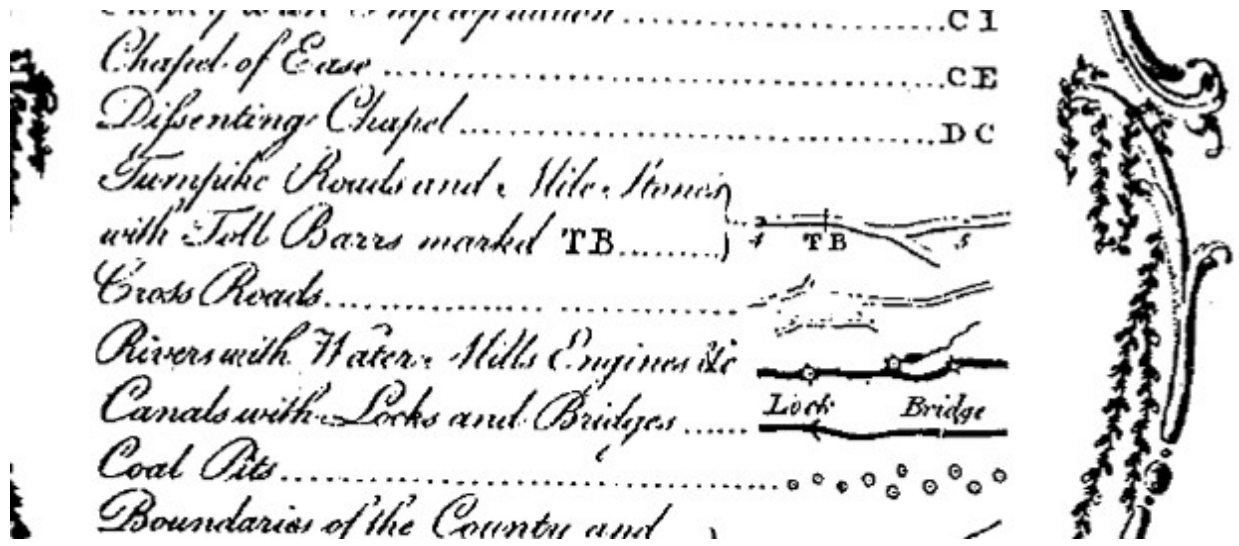 C I
Chapel of Ease ..... C E
Diſsenting Chapel ..... D C
Turnpike Roads and Mile Stones
with Toll Barrs marked TB ..... 4 TB 5
Croſs Roads .....
Rivers with Water Mills Engines &c
Canals with Locks and Bridges ..... Lock Bridge
Coal Pits .....
Boundaries of the County and